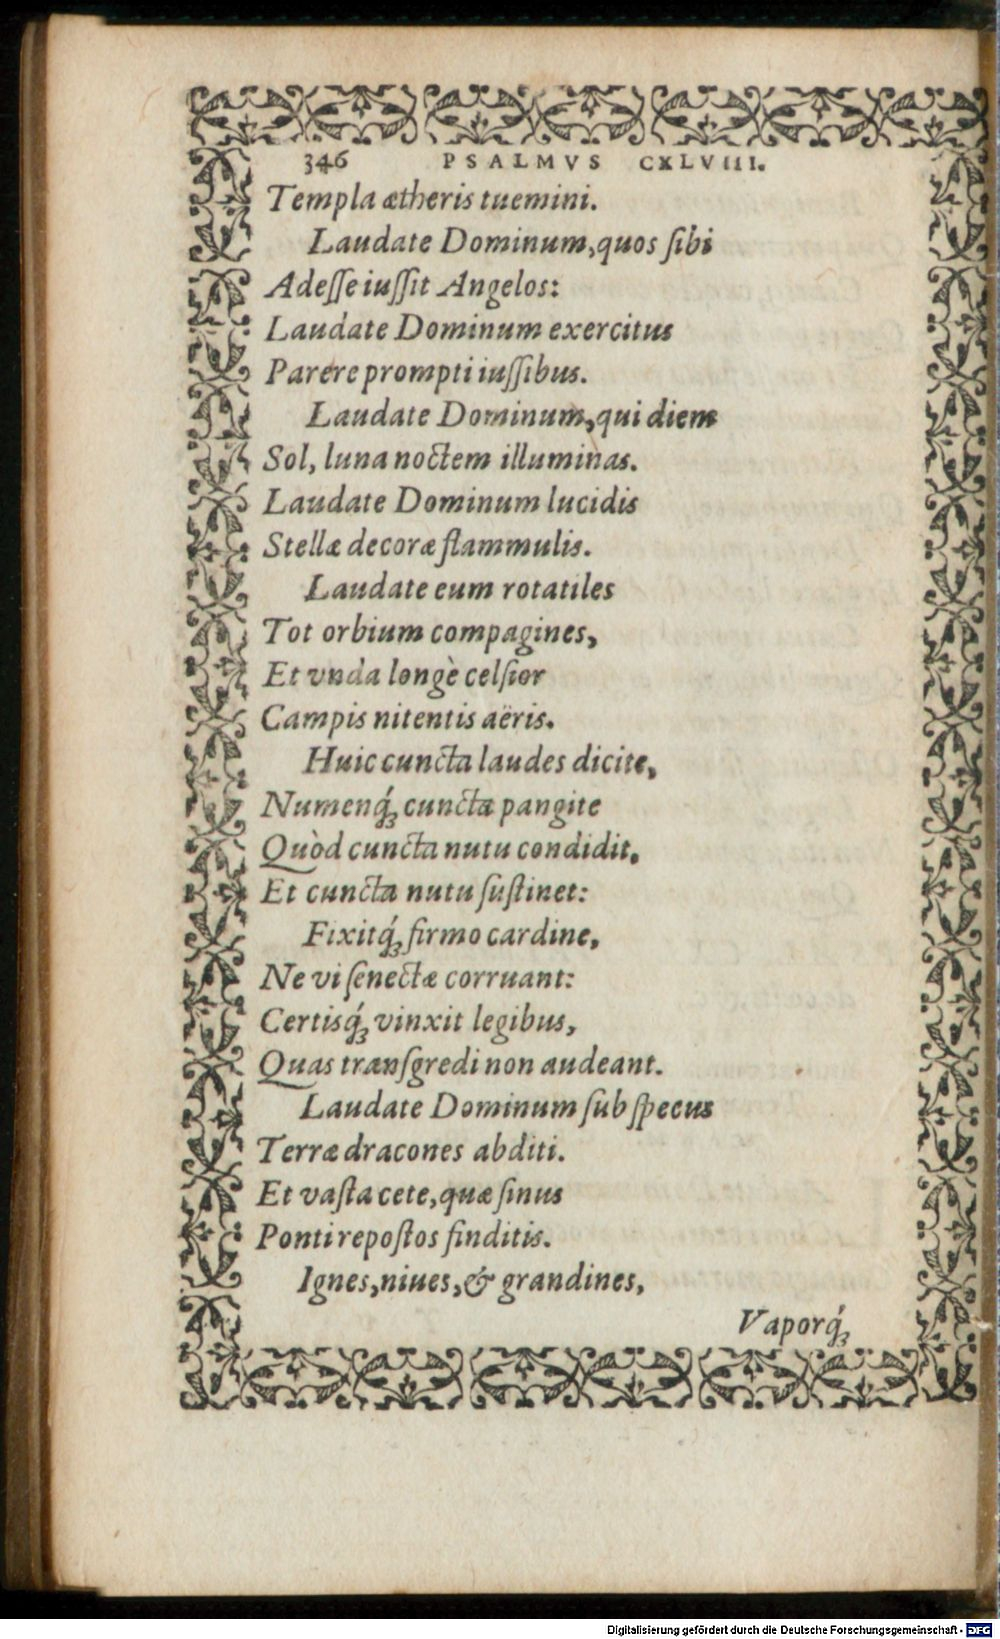 346 PSALMVS CXLVIII.
Templa ætheris tuemini.
Laudate Dominum, quos ſibi
Adeſſe iuſſit Angelos:
Laudate Dominum exercitus
Parere prompti iuſſibus.
Laudate Dominum, qui diem
Sol, luna noctem illuminas.
Laudate Dominum lucidis
Stellæ decoræ flammulis.
Laudate eum rotatiles
Tot orbium compagines,
Et vnda longè celſior
Campis nitentis aëris.
Huic cuncta laudes dicite,
Numenq́ꝫ cuncta pangite
Quòd cuncta nutu condidit,
Et cuncta nutu ſuſtinet:
Fixitq́ꝫ firmo cardine,
Ne vi ſenectæ corruant:
Certisq́ꝫ vinxit legibus,
Quas tranſgredi non audeant.
Laudate Dominum ſub ſpecus
Terræ dracones abditi.
Et vaſta cete, quæ ſinus
Ponti repoſtos finditis.
Ignes, niues, & grandines,
Vaporq́ꝫ
Digitalisierung gefördert durch die Deutsche Forschungsgemeinschaft - DFG